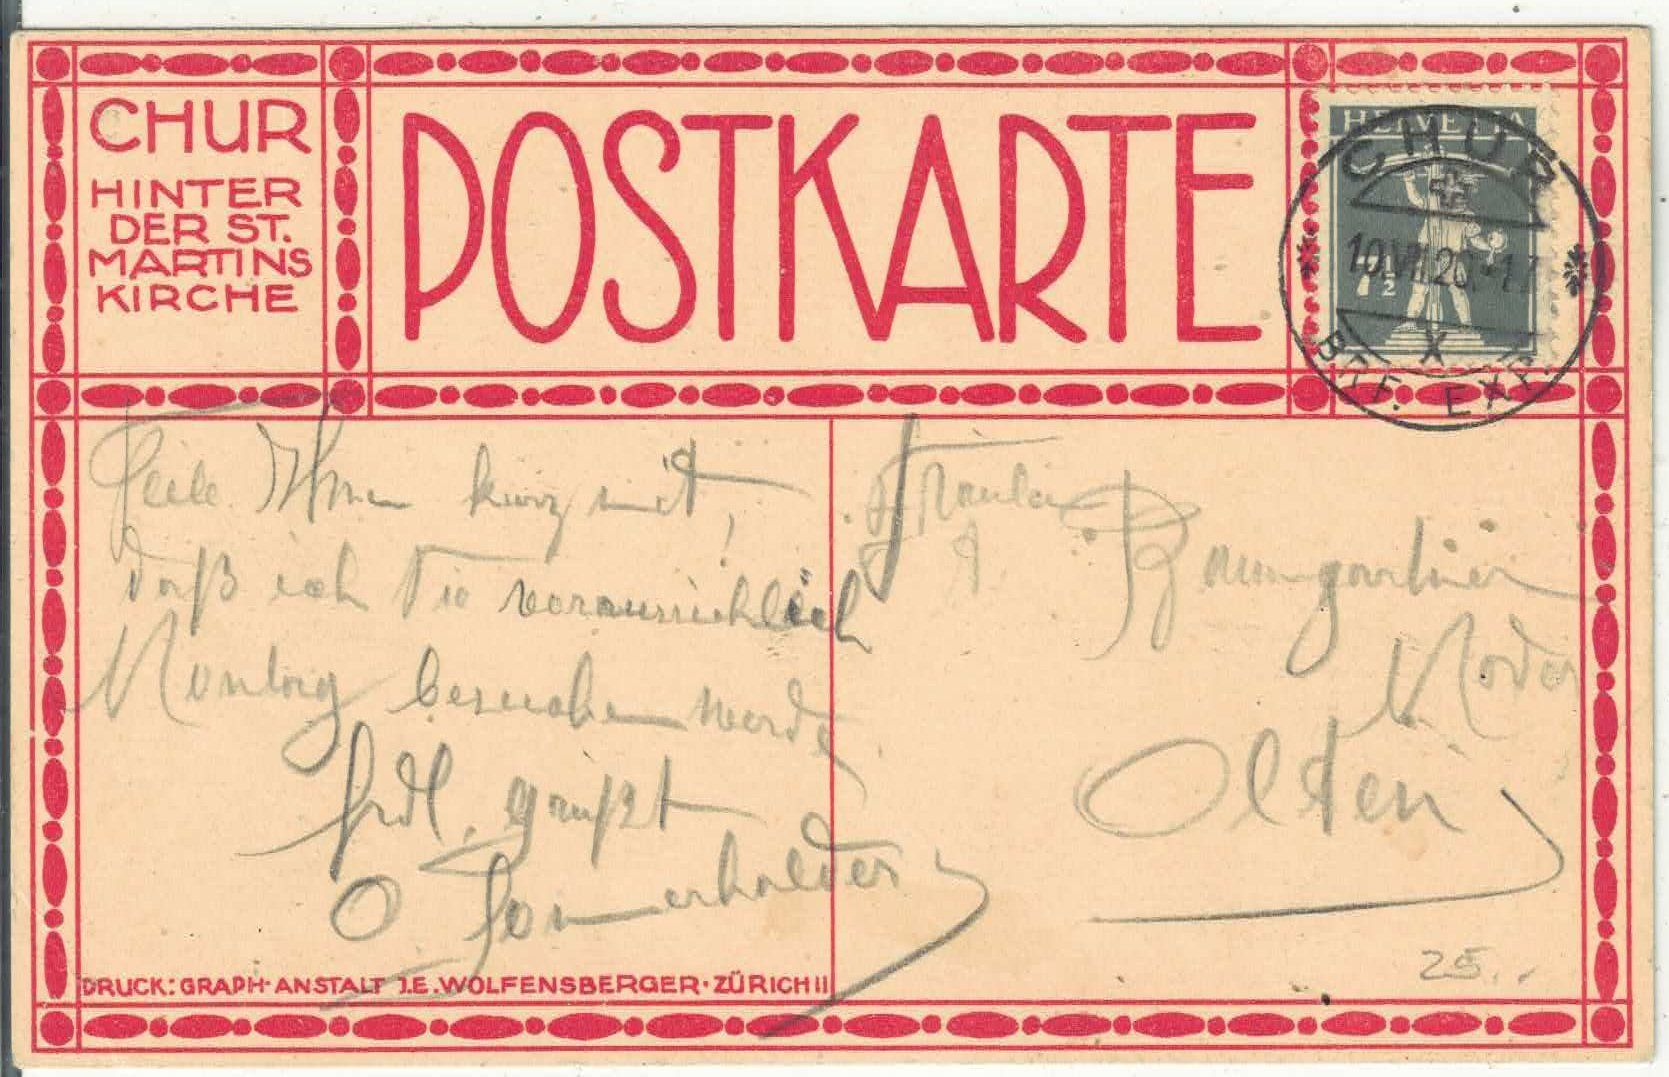 CHUR
HINTER
DER ST.
MARTINS
KIRCHE
POSTKARTE
HELVETIA
7½
CHUR
10.VII.26.-17
X
BRF. EXP.
Teile Ihnen kurz mit,
daß ich Sie voraussichtlich
Montag besuchen werde.
frdl. grüßt
O. Sommerhalder
Fräulein
Baumgartner
Modes
Olten
25.-
DRUCK: GRAPH·ANSTALT J.E.WOLFENSBERGER·ZÜRICH II